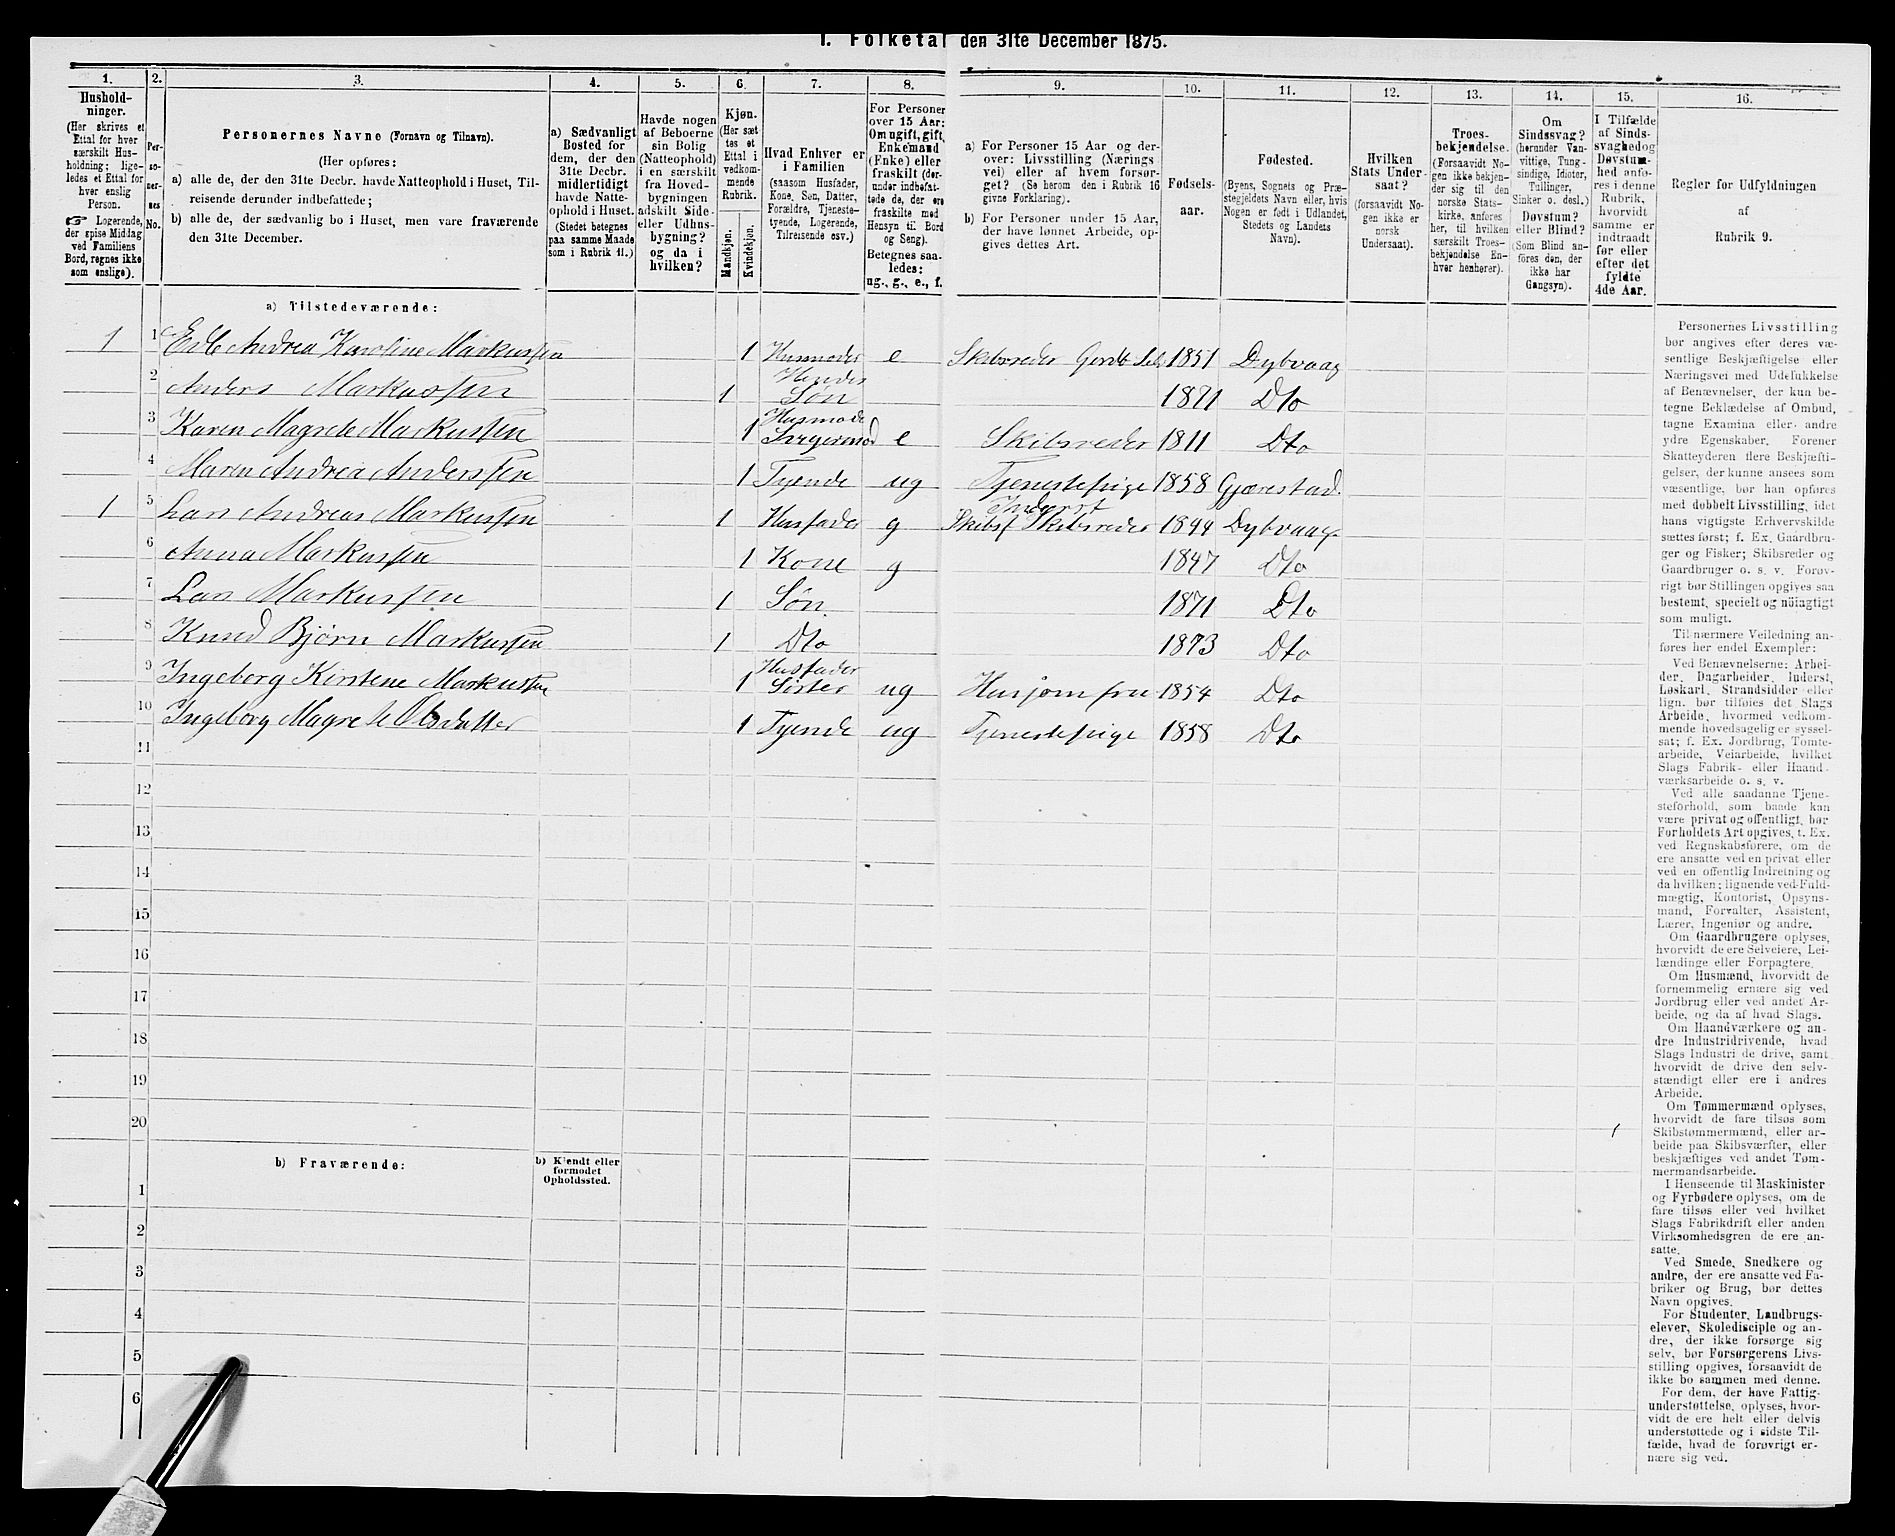 I. Folketal den 31te December 1875.
1.
Hushold-
ninger.
(Her skrives et
Ettal for hver
særskilt Hus-
holdning; lige-
ledes et Ettal for
hver enslig
Person.
☞ Logerende,
der spise Middag
ved Familiens
Bord, regnes ikke
som enslige).
2.
Per-
so-
ner-
nes
No.
3.
Personernes Navne (Fornavn og Tilnavn).
(Her opføres:
a) alle de, der den 31te Decbr. havde Natteophold i Huset, Til-
reisende derunder indbefattede;
b) alle de, der sædvanlig bo i Huset, men vare fraværende
den 31te December.
4.
a) Sædvanligt
Bosted for
dem, der den
31te Decbr.
midlertidigt
havde Natte-
ophold i Huset.
(Stedet betegnes
paa samme Maade
som i Rubrik 11.)
5.
Havde nogen
af Beboerne
sin Bolig
(Natteophold)
i en særskilt
fra Hoved-
bygningen
adskilt Side-
eller Udhus-
bygning?
og da i
hvilken?
6.
Kjøn.
(Her sæt-
tes et
Ettal i
vedkom-
mende
Rubrik.
Mandkjøn.
Kvindekjøn.
7.
Hvad Enhver er
i Familien
(saasom Husfader,
Kone, Søn, Datter,
Forældre, Tjeneste-
tyende, Logerende,
Tilreisende osv.)
8.
For Personer
over 15 Aar:
Om ugift, gift,
Enkemand
(Enke) eller
fraskilt (der-
under indbefat-
tede de, der ere
fraskilte med
Hensyn til Bord
og Seng).
Betegnes saa-
ledes:
ug., g., e., f.
9.
a) For Personer 15 Aar og der-
over: Livsstilling (Nærings
vei) eller af hvem forsør-
get? (Se herom den i Rubrik 16
givne Forklaring).
b) For Personer under 15 Aar,
der have lønnet Arbeide, op-
gives dettes Art.
10.
Fødsels-
aar.
11.
Fødested.
(Byens, Sognets og Præ-
stegjeldets Navn eller, hvis
Nogen er født i Udlandet,
Stedets og Landets
Navn).
12.
Hvilken
Stats Under-
saat?
(forsaavidt No-
gen ikke er
norsk
Undersaat).
13.
Troes-
bekjendelse.
(Forsaavidt No-
gen ikke bekjen-
der sig til den
norske Stats-
kirke, anføres
her, til hvilken
særskilt Troes-
bekjendelse En-
hver henhører).
14.
Om
Sindssvag?
(herunder Van-
vittige, Tung-
sindige, Idioter,
Tullinger,
Sinker o. desl.)
Døvstum?
eller Blind?
(Som Blind an-
føres den, der
ikke har
Gangsyn).
15.
I Tilfælde
af Sinds-
svaghed og
Døvstum-
hed anfø-
res i denne
Rubrik,
hvorvidt
samme er
indtraadt
før eller
efter det
fyldte
4de Aar.
16.
Regler for Udfyldningen
af
Rubrik 9.
a) Tilstedeværende:
1 1 Edle Andrea Karoline Markussen 1 Husmoder e Skibsreder 1851 Dybvaag
2 Anders Markussen 1 Hendes Søn 1871 Dto
3 Karen Magrete Markussen 1 e Skibsreder 1811 Dto
4 Maren Andrea Anderssen 1 Tyende ug Tjenestepige 1858 Gjærestad.
1 5 Lars Andreas Markussen 1 Husfader g Inderst Skibsf Skibsreder 1844 Dybvaag
6 Anna Markussen 1 Kone g 1847 Dto
7 Lars Markussen 1 Søn 1871 Dto
8 Knud Bjørn Markussen 1 Dto 1873 Dto
9 Ingeborg Kirstene Markussen 1 Husfader Sister ug Husjomfru 1854 Dto
10 Ingeborg Magrete Olsdatter 1 Tyende ug Tjenestepige 1858 Dto
11
12
13
14
15
16
17
18
19
20
b) Fraværende:
b) Kjendt eller
formodet
Opholdssted.
1
2
3
4
5
6
Personernes Livsstilling
bør angives efter deres væ-
sentlige Beskjæftigelse eller
Næringsvei med Udelukkelse
af Benævnelser, der kun be-
tegne Beklædelse af Ombud,
tagne Examina eller andre
ydre Egenskaber. Forener
Skatteyderen flere Beskjæfti-
gelser, der kunne ansees som
væsentlige, bør han opføres
med dobbelt Livsstilling, idet
hans vigtigste Erhvervskilde
sættes først; f. Ex. Gaardbru-
ger og Fisker; Skibsreder og
Gaardbruger o. s. v. Forøv-
rigt bør Stillingen opgives saa
bestemt, specielt og nöiagtigt
som muligt.
Til nærmere Veiledning an-
føres her endel Exempler:
Ved Benævnelserne: Arbei-
der, Dagarbeider, Inderst,
Løskarl, Strandsidder eller
lign. bør tilføies det Slags
Arbeide, hvormed vedkom-
mende hovedsagelig er syssel-
sat; f. Ex. Jordbrug, Tomte-
arbeide, Veiarbeide, hvilket
Slags Fabrik- eller Haand-
værksarbeide o. s. v.
Ved alle saadanne Tjene-
steforhold, som baade kan
være privat og offentligt, bør
Forholdets Art opgives, t. Ex.
ved Regnskabsførere, om de
ere ansatte ved en privat eller
ved en offentlig Indretning og
da hvilken; lignende ved Fuld-
mægtig, Kontorist, Opsyns-
mand, Forvalter, Assistent,
Lærer, Ingeniør og andre.
Om Gaardbrugere oplyses,
hvorvidt de ere Selveiere, Lei-
lændinge eller Forpagtere.
Om Husmænd, hvorvidt de
fornemmelig ernære sig ved
Jordbrug eller ved andet Ar-
beide, og da af hvad Slags.
Om Haandværkere og an-
dre Industridrivende, hvad
Slags Industri de drive, samt
hvorvidt de drive den selv-
stændigt eller ere i andres
Arbeide.
Om Tømmermænd oplyses,
hvorvidt de fare tilsøs som
Skibstømmermænd, eller ar-
beide paa Skibsværfter, eller
beskjæftiges ved andet Tøm-
mermandsarbeide.
I Henseende til Maskinister
og Fyrbødere oplyses, om de
fare tilsøs eller ved hvilket
Slags Fabrikdrift eller anden
Virksomhedsgren de ere an-
satte.
Ved Smede, Snedkere og
andre, der ere ansatte ved Fa-
briker og Brug, bør dettes
Navn opgives.
For Studenter, Landbrugs-
elever, Skoledisciple og an-
dre, der ikke forsørge sig
selv, bør Forsørgerens Livs-
stilling opgives, forsaavidt de
ikke bo sammen med denne.
For dem, der have Fattig-
understøttelse, oplyses, hvor-
vidt de ere helt eller delvis
understøttede og i sidste Til-
fælde, hvad de forøvrigt er-
nære sig ved.